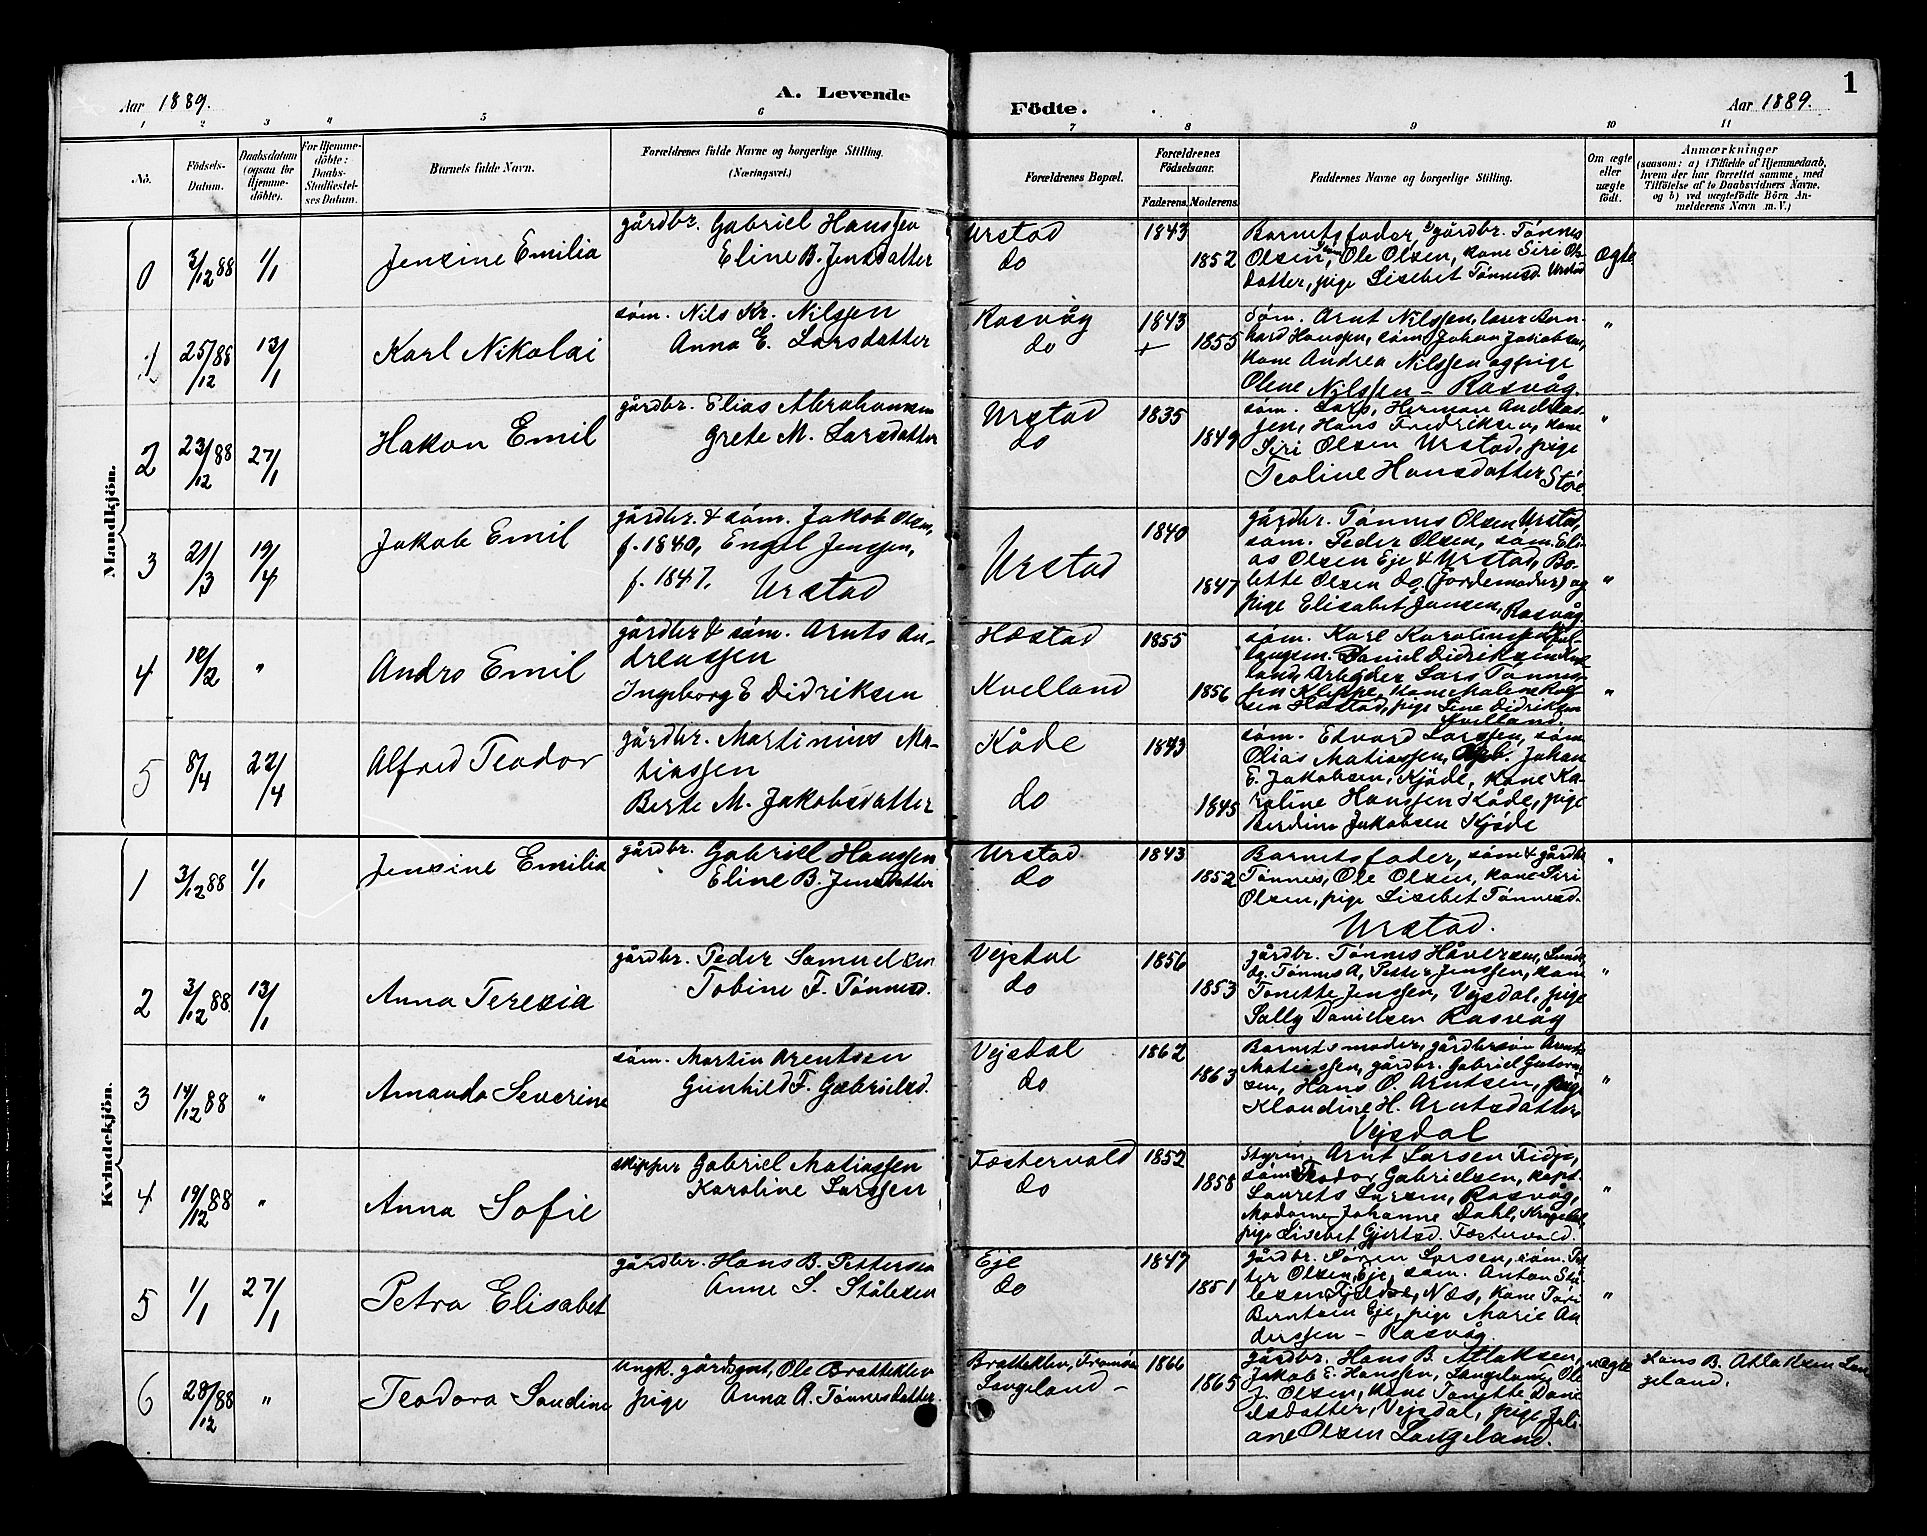 Aar 1889.
A. Levende
Födte.
Aar 1889.
1
1 2 3 4 5 6 7 8 9 10 11
No.
Födsels-
Datum.
Daabsdatum
(ogsaa for
Hjemme-
döbte).
For Hjemme-
döbte:
Daabs-
Stadfæstel-
ses Datum.
Barnets fulde Navn.
Forældrenes fulde Navne og borgerlige Stilling.
(Næringsvei.)
Forældrenes Bopæl.
Forældrenes
Födselsaar.
Faderens. Moderens.
Faddernes Navne og borgerlige Stilling.
Om ægte
eller
uægte
födt.
Anmærkninger
(saasom: a) i Tilfælde af Hjemmedaab,
hvem der har forrettet samme, med
Tilföielse af to Daabsvidners Navne,
og b) ved uægtefödte Börn An-
melderens Navn m. V.)
Mandkjön.
0 3/12 88 1/1 Jensine Emilia
gårdbr. Gabriel Hanssen
Eline B. Jensdatter
Urstad
do
1843
1852
Barnets fader, gårdbr. Tønnes
Olsen, Ole Olsen, kone Siri Ols-
datter, pige Lisebet Tønnesd. Urstad
ægte
1 25/12 88 13/1 Karl Nikolai
søm. Nils Kr. Nilssen
Anna E. Larsdatter
Rasvåg
do
1843
+
1855
Søm. Arnt Nilssen, lærer Bern-
hard Hanssen, søm Johan Jakobsen,
kone Andrea Nilssen og pige
Olene Nilssen – Rasvåg.
"
2 23/12 88 27/1 Hakon Emil
gårdbr. Elias Abrahamsen
Grete M. Larsdatter
Urstad
do
1835
1849
søm. Lars, Herman Andreas-
sen, Hans Fredriksen, kone
Siri Olsen Urstad, pige
Teoline Hansdatter
"
3 21/3 19/4 Jakob Emil
gårdbr. & søm. Jakob Olsen,
f. 1840, Engel Jenssen,
f. 1847. Urstad
Urstad
1840
1847
gårdbr. Tønnes Olsen Urstad,
søm. Peder Olsen, søm. Eli-
as Olsen Eje & Urstad, Bo-
lette Olsen do (Jordemoder) og
pige Elisabet Jansen, Rasvåg
"
4 10/2 " Andro Emil
gårdbr & søm. Arnts An-
dreassen
Ingeborg E Didriksen
Hæstad
Kvelland
1855
1856
søm. Karl
Daniel Didriksen
Arbejder Lars Tønnes-
sen Kleppe, kone Malene
sen Hæstad, pige Lene Didriksen
Kvelland.
"
5 8/4 22/4 Alfred Teodor
gårdbr. Martinius Ma-
tiassen
Berte M. Jakobsdatter
Kåde
do
1843
1845
søm. Edvard Larssen, søm
Olias Matiassen, Johan
E. Jakobsen, Kjøde, kone Ka-
roline Hanssen Kåde, pige
Berdine Jakobsen Kjøde
Kvindekjön.
1 3/12 88 1/1 Jensine Emilia
gårdbr. Gabriel Hanssen
Eline B. Jensdatter
Urstad
do
1843
1852
Barnets fader, søm & gårdbr
Tønnes, Ole Olsen, kone Siri
Olsen, pige Lisebet Tønnesd.
Urstad.
"
2 3/12 88. 13/1 Anna Teresia
gårdbr. Peder Samuelsen
Tobine F. Tønnesd.
Vejsdal
do
1856
1853
gårdbr. Tønnes Håversen,
Tønnes A, Petter Jenssen, kone
Tonette Jenssen, Vejsdal, pige
Sally Danielsen Rasvåg
"
3 14/12 88 " Amanda Severine
søm. Martin Arentsen
Gunhild F. Gabrielsd.
Vejsdal
do
1862
1863
Barnets moder, gårdbrsøn
Matiassen, gårdbr. Gabriel
sen, Hans O. Arntsen, pige
Klaudine H. Arntsdatter,
Vejsdal
"
4 19/12 88 " Anna Sofie
skipper Gabriel Matiassen
Karoline Larssen
Fæstervold
do
1852
1858
Styrm. Arnt Larsen Fidje,
søm Teodor Gabrielsen, kapt.
Laurets Larsen, Rasvåg,
Madame Johanne Dahl,
pige Lisebet Gjertsd. Fæstervold.
"
5 1/1 27/1 Petra Elisabet
gårdbr. Hans B. Pettersen
Anne S. Stålesen
Eje
do
1847
1851
gårdbr. Søren Larsen, søm. Pet-
ter Olsen, Eje, søm. Anton Stå-
lesen Næs, kone
Berntsen Eje, pige Marie An-
derssen – Rasvåg.
"
6 28/12 88 " Teodora Soudine
Ungk. Ole Bratteklev
pige Anna A. Tønnesdatter.
Bratteklev, Tromøen
Langeland –
1866
1865
gårdbr. Hans B. Atlaksen,
Jakob E. Hanssen, Langeland, Ole
J. Olsen, kone Tonette Dani-
elsdatter, Vejsdal, pige Juli-
ane Olsen Langeland.
uægte
Hans B. Atlaksen Lan-
geland.